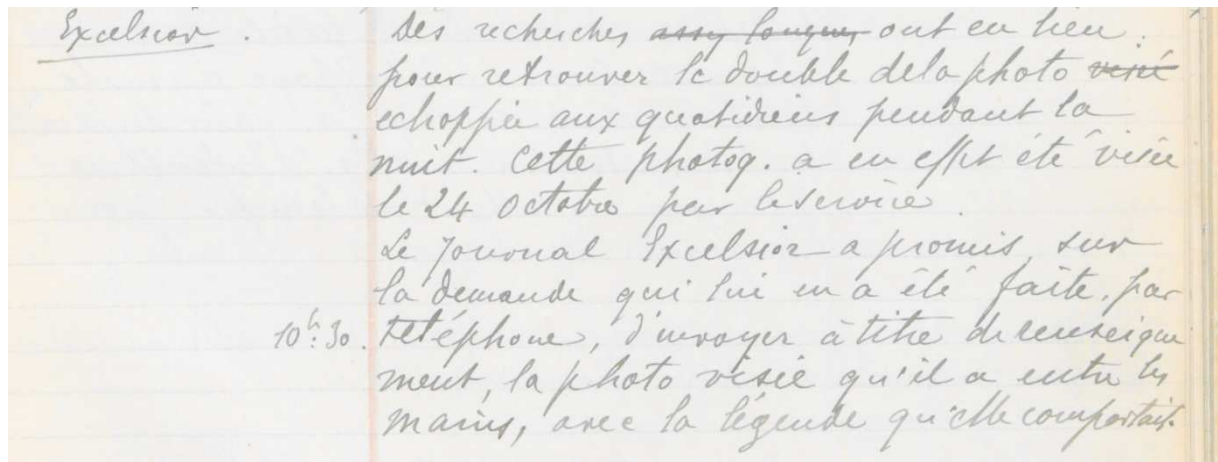 Excelsior. Des recherches assez longues ont eu lieu.
pour retrouver le double de la photo visé
echoppée aux quotidiens pendant la
nuit. Cette photog. a en effet été visée
le 24 Octobre par le service.
Le Journal Excelsior a promis, sur
la demande qui lui en a été faite, par
10h:30. téléphone, d'envoyer à titre de renseigne
ment, la photo visée qu'il a entre les
mains, avec la légende qu'elle comportait.